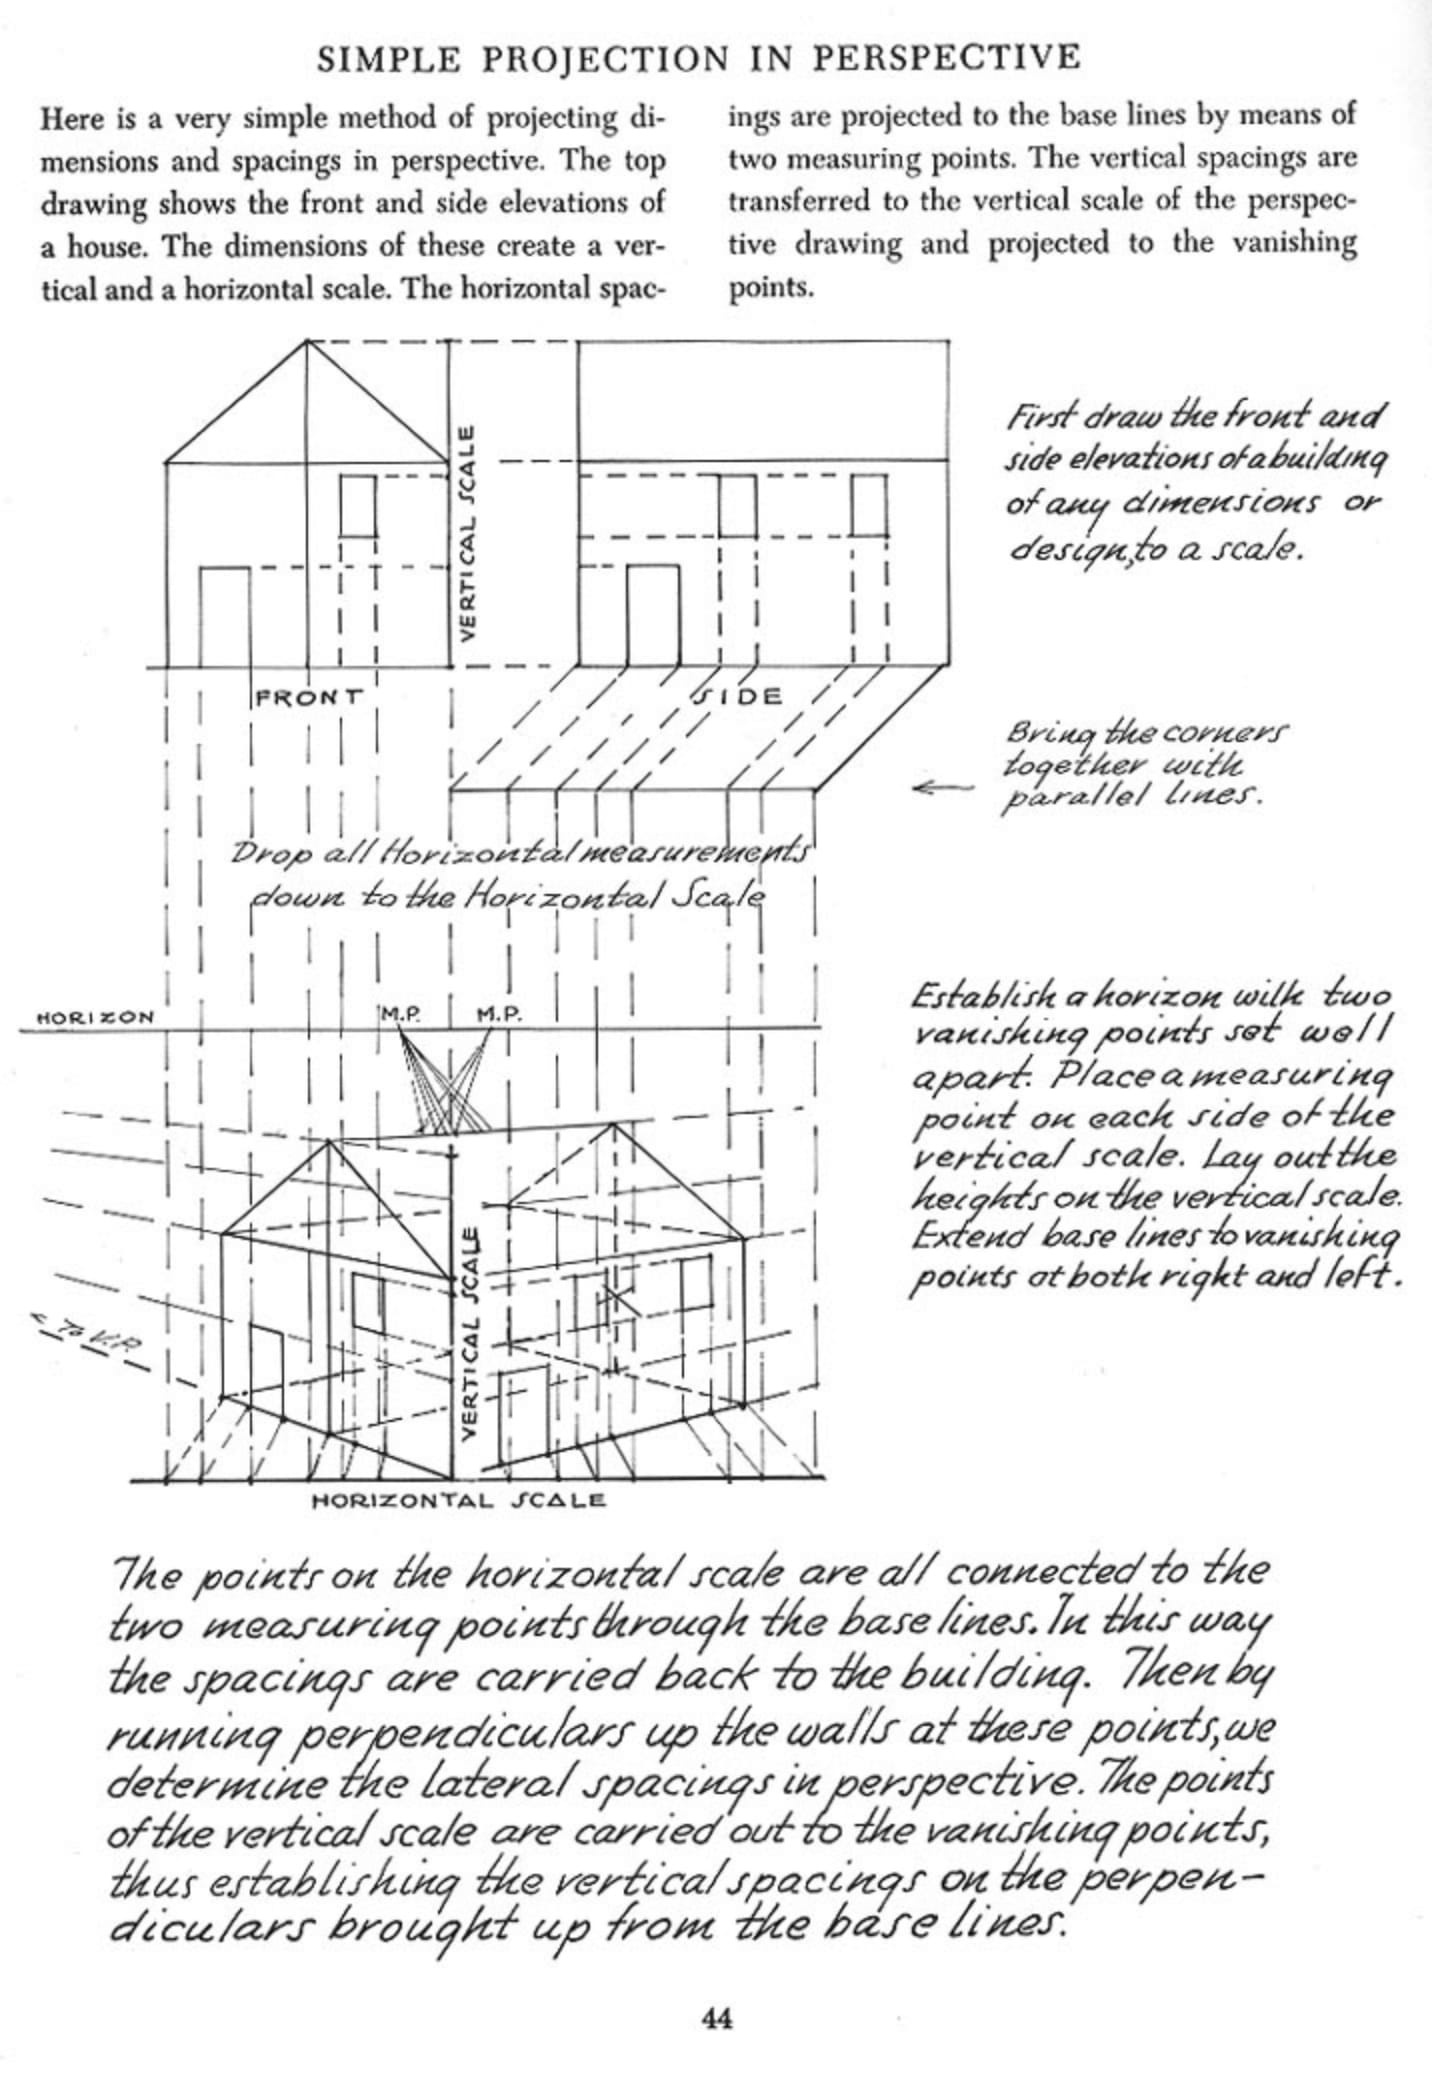 SIMPLE PROJECTION IN PERSPECTIVE
Here is a very simple method of projecting di-
mensions and spacings in perspective. The top
drawing shows the front and side elevations of
a house. The dimensions of these create a ver-
tical and a horizontal scale. The horizontal spac-
ings are projected to the base lines by means of
two measuring points. The vertical spacings are
transferred to the vertical scale of the perspec-
tive drawing and projected to the vanishing
points.
VERTICAL SCALE
First draw the front and
side elevations of a building
of any dimensions or
design, to a scale.
FRONT
SIDE
Bring the corners
together with
parallel lines.
Drop all Horizontal measurements
down to the Horizontal Scale
HORIZON
M.P.
M.P.
Establish a horizon with two
vanishing points set well
apart. Place a measuring
point on each side of the
vertical scale. Lay out the
heights on the vertical scale.
Extend base lines to vanishing
points at both right and left.
To V.P.
VERTICAL SCALE
HORIZONTAL SCALE
The points on the horizontal scale are all connected to the
two measuring points through the base lines. In this way
the spacings are carried back to the building. Then by
running perpendiculars up the walls at these points, we
determine the lateral spacings in perspective. The points
of the vertical scale are carried out to the vanishing points,
thus establishing the vertical spacings on the perpen-
diculars brought up from the base lines.
44